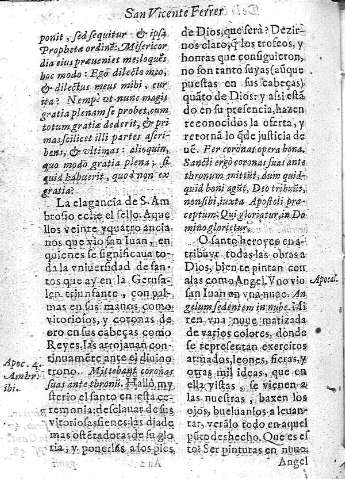 San Vicente Ferrer
ponit, sed sequitur: & ipsa
Prophetæ ordinẽ. Misericor
dia eius præueniet me: loques
hoc modo: Ego dilecto meo,
& dilectus meus mihi,
Nempè ut nunc magis
gratia plenam se probet, cum
totum gratiæ dederit, & pri
mas scilicet illi partes ascri-
bens, & vltimas: alioquin,
quo modo gratia plena; si
quid habuerit, quod non ex
gratia?
La elegancia de S. Am
brosio eche el sello. Aque
llos veinte y quatro ancia
nos que vio san Iuan, en
quienes se significaua to
da la vniuersidad de san
tos que ay en la Gerusa
len triunfante, con pal
mas en sus manos como
vitoriosos, y coronas de
oro en sus cabeças como
Reyes, las arrojauan con
tinuamẽte ante el diuino
trono. Mittebant coronas
suas ante thronũ. Halló my
sterio el santo en esta ce-
remonia: desclauos de sus
vitoriosas sienes las diade
mas ostentadoras de su glo
ria, y ponerlas a los pies
Apoc. 4.
Ambr.
ibi.
de Dios, que serà? Dezir-
nos claro, q̃ los trofeos, y
honras que consiguieron,
no son tanto suyas (aũque
puestas en sus cabeças)
quãto de Dios: y assi està
do en su presencia, hazen
reconocidos la oferta, y
retorna lo que justicia de
ne. Per coronas opera bona.
Sancti ergò coronas suas ante
thronum mittũt, dum quid-
quid boni agũt, Deo tribuũt,
non sibi, iuxta Apostoli præ
ceptum: Qui gloriatur, in Do
mino glorietur.
O santo heroyco en a-
tribuyr todas las obras a
Dios, bien te pintan con
alas como Angel. Vno vio
san Iuan en vna nube. An
gelum sedentem in nube. Ai
ren vna nube matizada
de varios colores, donde
se representan exercitos
armados, leones, fieras, y
otras mil ideas, que en
ella vistas, se vienen a
las nuestras, baxen los
ojos, bueluanlos a leuan-
tar, veràlo todo en aquel
poco deshecho. Que es es
to? Ser pinturas en nube.
Apocal.
Angel